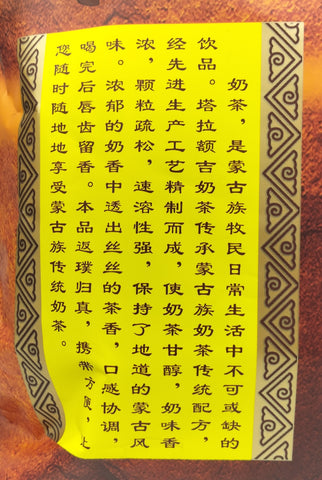 奶茶，是蒙古族牧民日常生活中不可或缺的
饮品。塔拉额吉奶茶传承蒙古族奶茶传统配方，
经先进生产工艺精制而成，使奶茶甘醇，奶味香
浓，颗粒疏松，速溶性强，保持了地道的蒙古风
味。浓郁的奶香中透出丝丝的茶香，口感协调，
喝完后唇齿留香。本品返璞归真，携带方便，
您随时随地享受蒙古族传统奶茶。